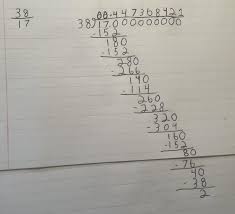 38
17
00.447368421
38)17.0000000000
-152
180
-152
280
-266
140
-114
260
-228
320
-304
160
-152
80
-76
40
-38
2